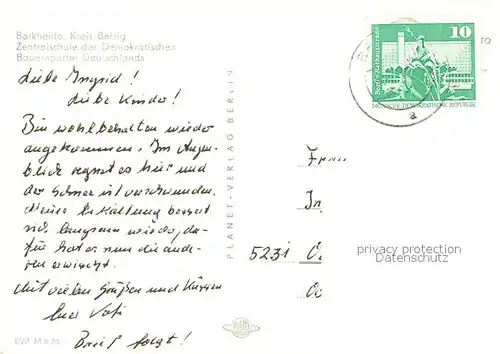 Borkheide, Kreis Belzig
Zentralschule der Demokratischen
Bauernpartei Deutschlands
Liebe Ingrid!
Liebe Kinder!
Bin wohlbehalten wieder
angekommen. Im Augen-
blick regnet es hier und
der Schnee ist verschwunden.
Meine Erkältung bessert
sich langsam wieder, da-
für hat es nun die ande-
ren erwischt.
Mit vielen Grüßen und Küssen
Euer Vati
Brief folgt!
EVP M 0.20
PLANET-VERLAG BERLIN
10
DEUTSCHE DEMOKRATISCHE REPUBLIK
a
Frau
5231
privacy protection
Datenschutz